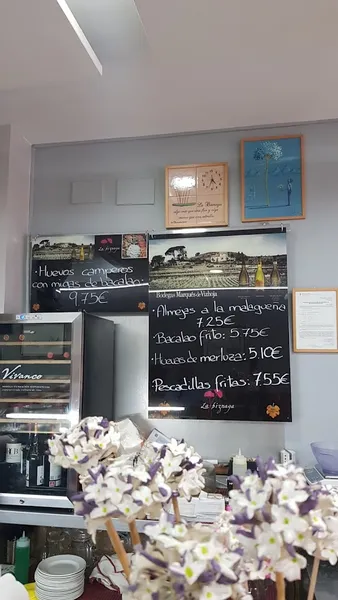 La Biznaga
La biznaga
· Huevos camperos
con migas de bacalao:
9,75€
Bodegas Marqués de Vizhoja
· Almejas a la malagueña
7,25€
· Bacalao frito: 5,75€
· Huevas de merluza: 5,10€
· Pescadillas fritas: 7,55€
La biznaga
Vivanco